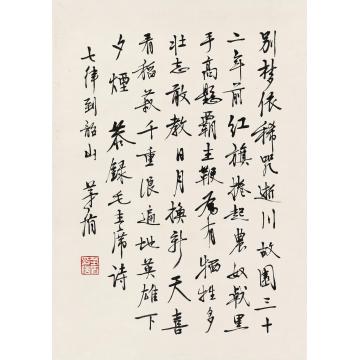 别梦依稀咒逝川故園三十
二年前紅旗捲起農奴戟黑
手高懸霸主鞭為有犧牲多
壯志敢教日月換新天喜
看稻菽千重浪遍地英雄下
夕煙 恭錄毛主席诗
七律到韶山 茅盾